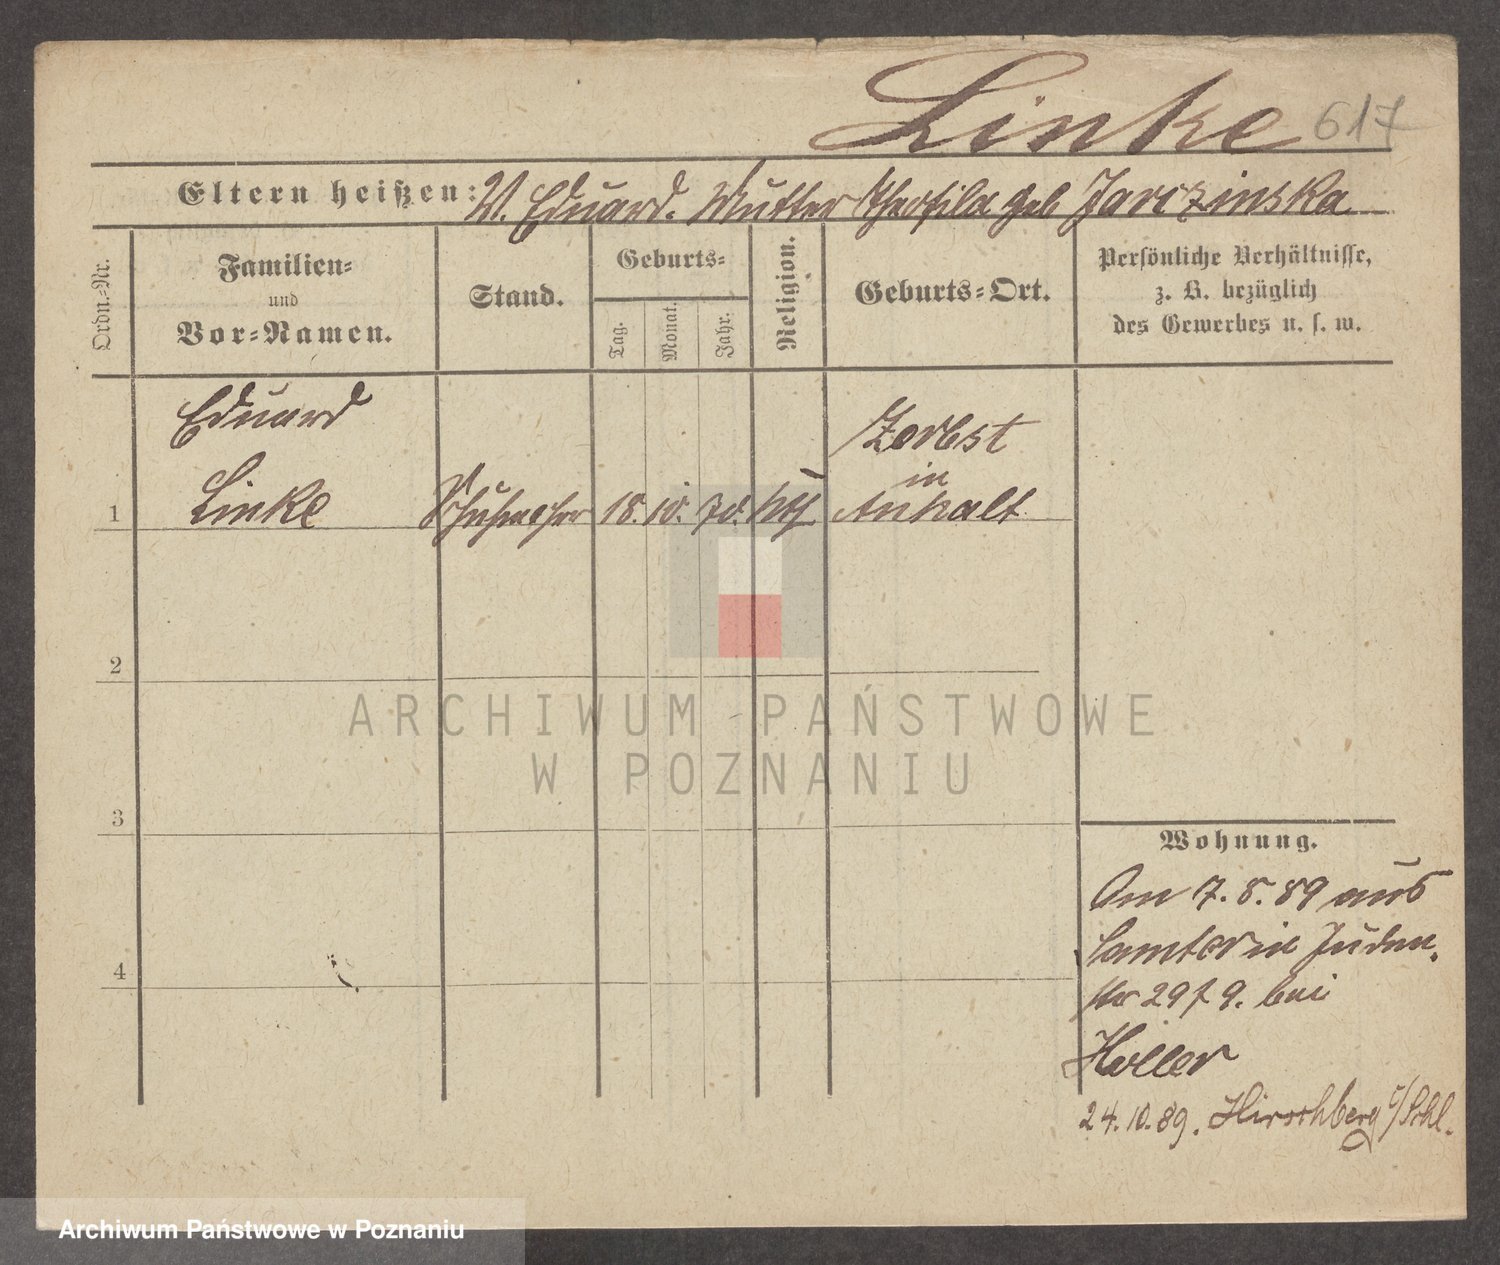 Linke 617
Eltern heißen: V. Eduard. Mutter Theofila geb Jarczinska
Ordn.-Nr.
Familien-
und
Vor-Namen.
Stand.
Geburts-
Tag.
Monat.
Jahr.
Religion.
Geburts-Ort.
Persönliche Verhältnisse,
z. B. bezüglich
des Gewerbes u. s. w.
Eduard
Linke
Zerbst
in
Anhalt
1
18. 10. 70.
2
3
4
ARCHIWUM PAŃSTWOWE
W POZNANIU
Wohnung.
Am 7. 8. 89 aus
Samter in Juden-
str 29 f 9. bei
Holler
24. 10. 89. Hirschberg i/Schl.
Archiwum Państwowe w Poznaniu